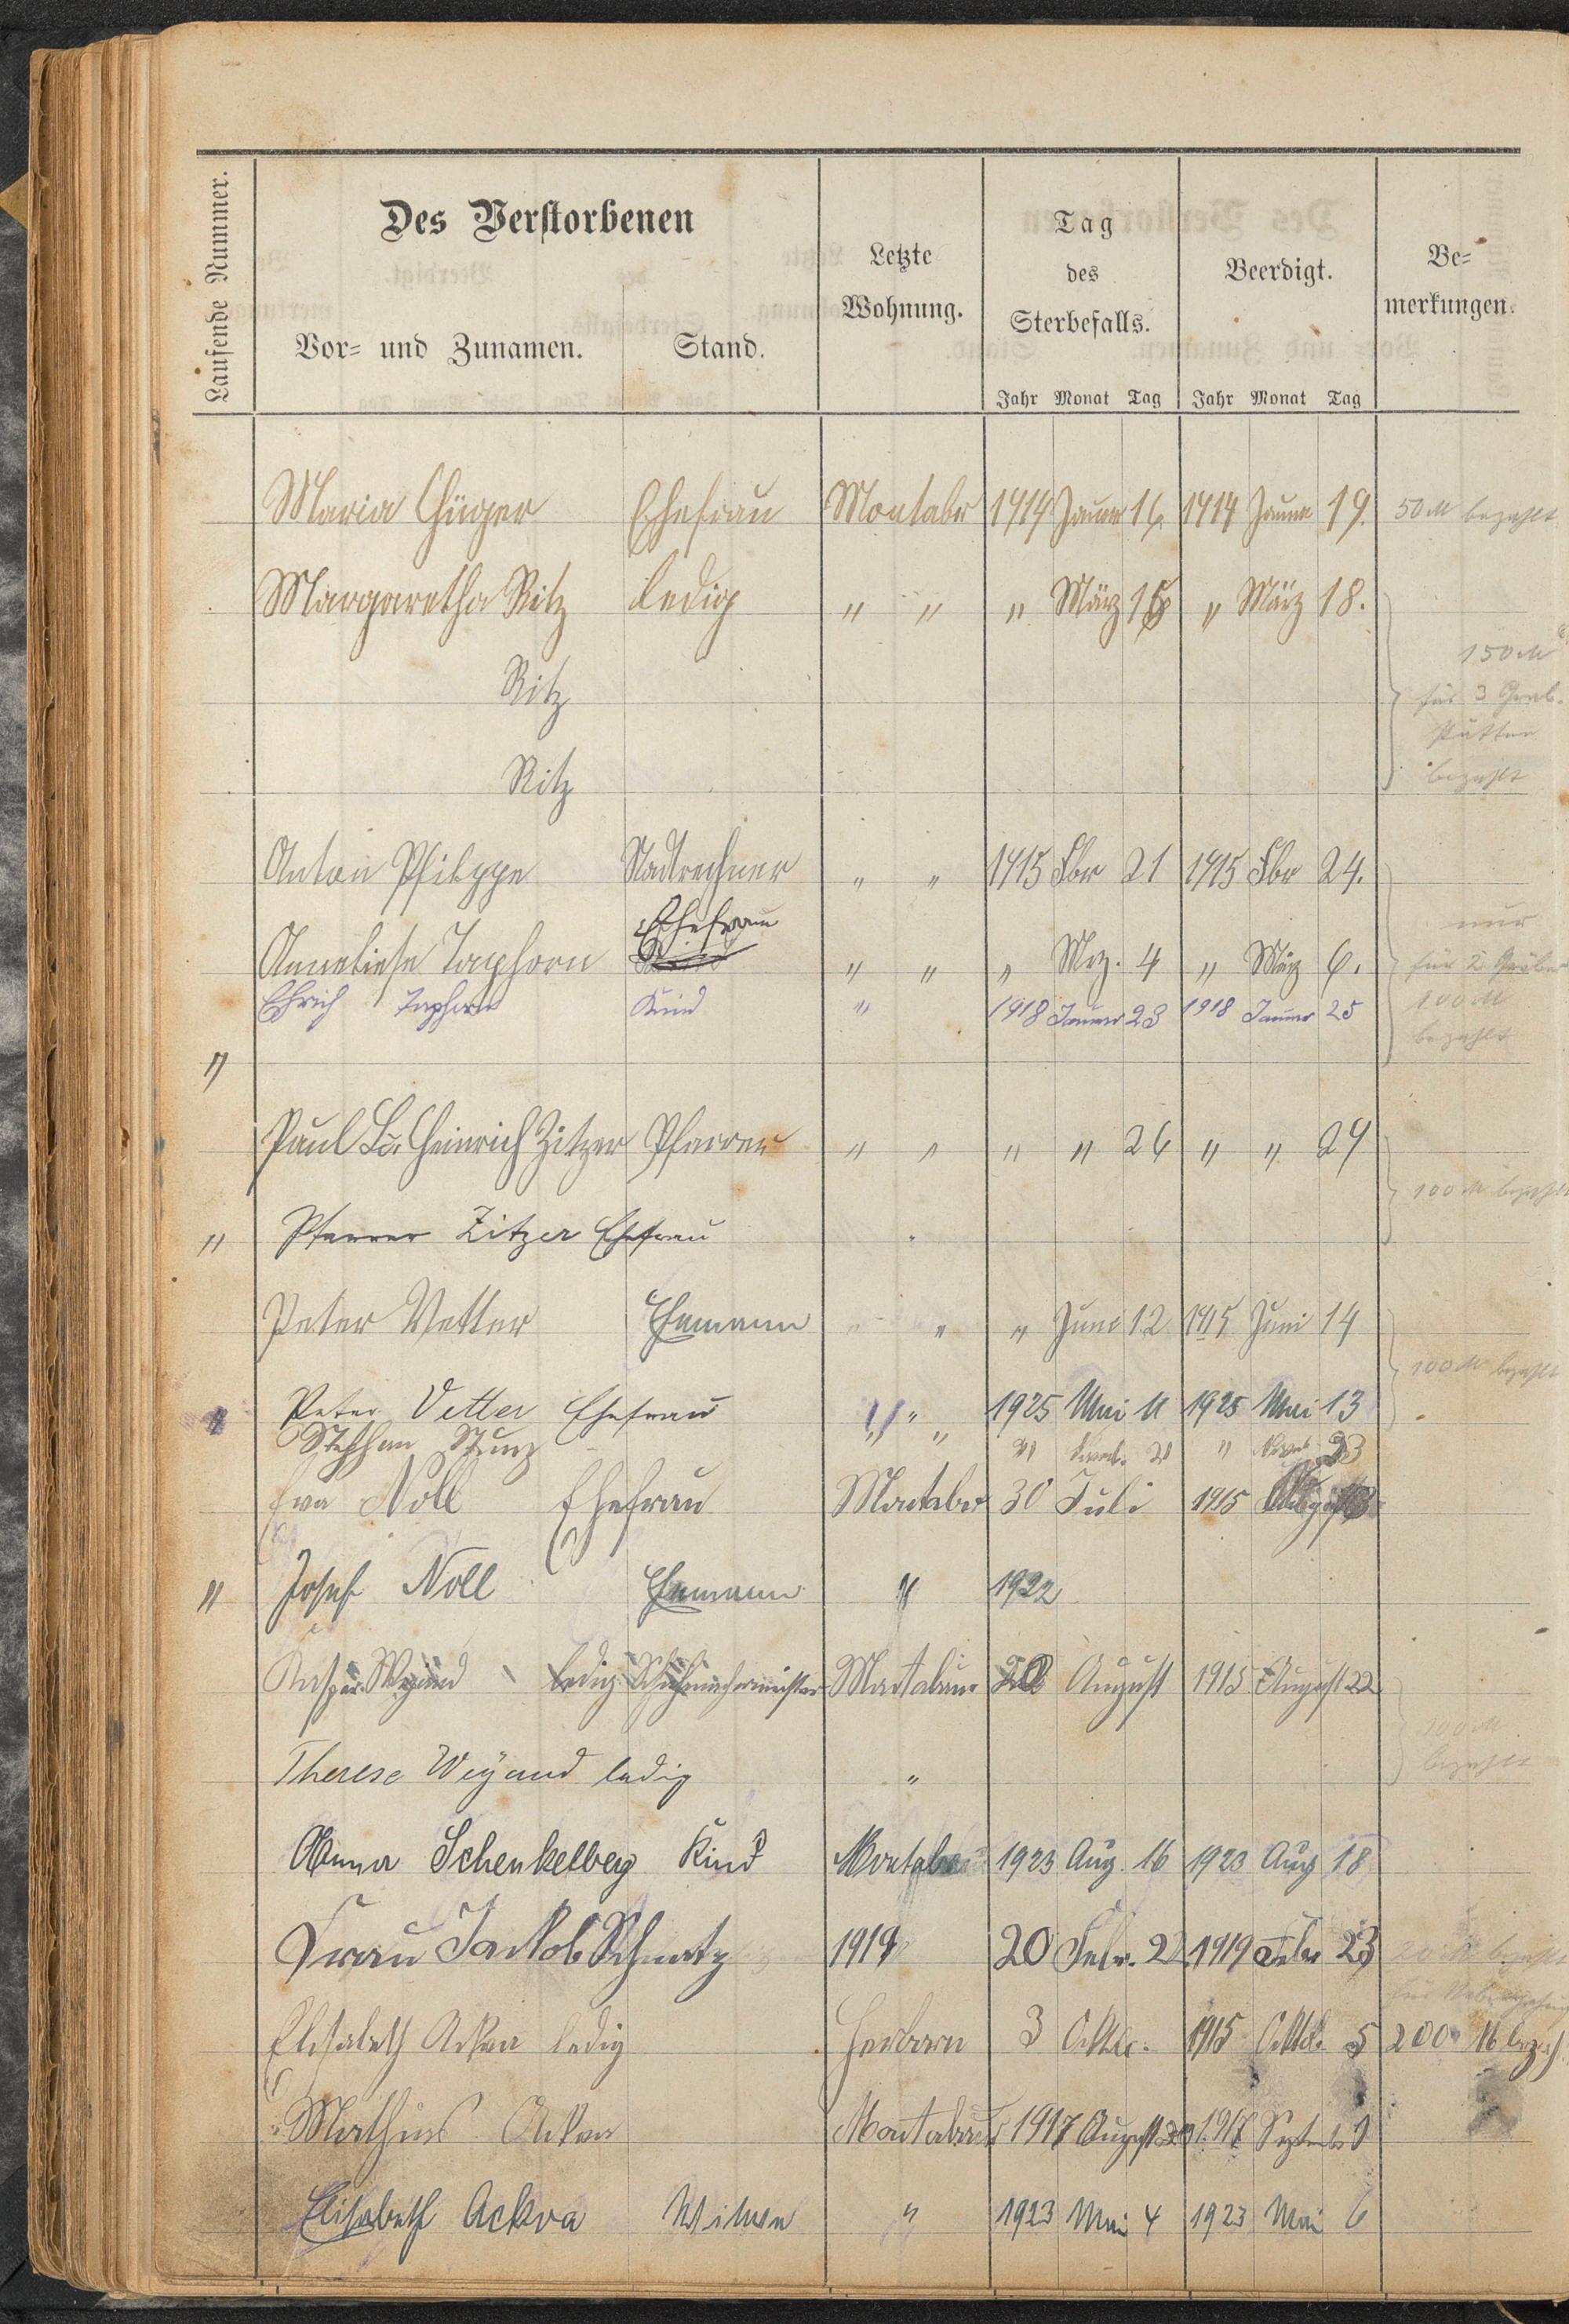 Laufende Nummer.
Des Verstorbenen
Vor- und Zunamen.
Stand.
Letzte
Wohnung.
Tag
des
Sterbefalls.
Beerdigt.
Be-
merkungen.
Jahr Monat Tag Jahr Monat Tag
Maria Ehefrau Montabr 1914 Januar 16. 1914 Januar 19. 50 M bezahlt
Margaretha Ritz ledig " " " März " März 18.
150 M
Ritz für 3 Grab-
stätten
Ritz bezahlt
Anton Philippe Stadtrechner " " 1915 Fbr 21 1915 Fbr 24.
Ehefrau nur
Anneliese Taphorn " " " Mrz. 4 " März 6. für 2 Gräber
Ehrich Taphorn Kind " 1918 Januar 23 1918 Januar 25 100 M
bezahlt
"
Paul Heinrich Zitzer Pfarrer " " " " 26 " " 29
100 M bezahlt
" Pfarrer Zitzer Ehefrau "
Peter Vetter Ehemann " " " Juni 12 1915 Juni 14
100 M bezahlt
" Peter Vetter Ehefrau " " 1925 Mai 11 1925 Mai 13
Stephan Sturz " " " Novb. 21 " Novb 23
Eva Noll Ehefrau Montabr 30 Juli 1915 August
" Josef Noll Ehemann " 1922
Kaspar Weyand ledig Schuhmachermeister Montabaur 20 August 1915 August 22
100 M
Therese Weyand ledig " bezahlt
Anna Schenkelberg Kind Montabaur 1923 Aug. 16 1923 Aug 18
Frau Jakob Schmatz 1919 20 Febr. 1919 Febr 23 20 M bezahlt
Elisabeth Ackva ledig Herborn 3 Oktb. 1915 Oktb. 5 200 M bezahl
Mathias Ackva Montabaur 1917 August 1917 Septembr 1
Elisabeth Ackva Witwe " 1923 Mai 4 1923 Mai 6